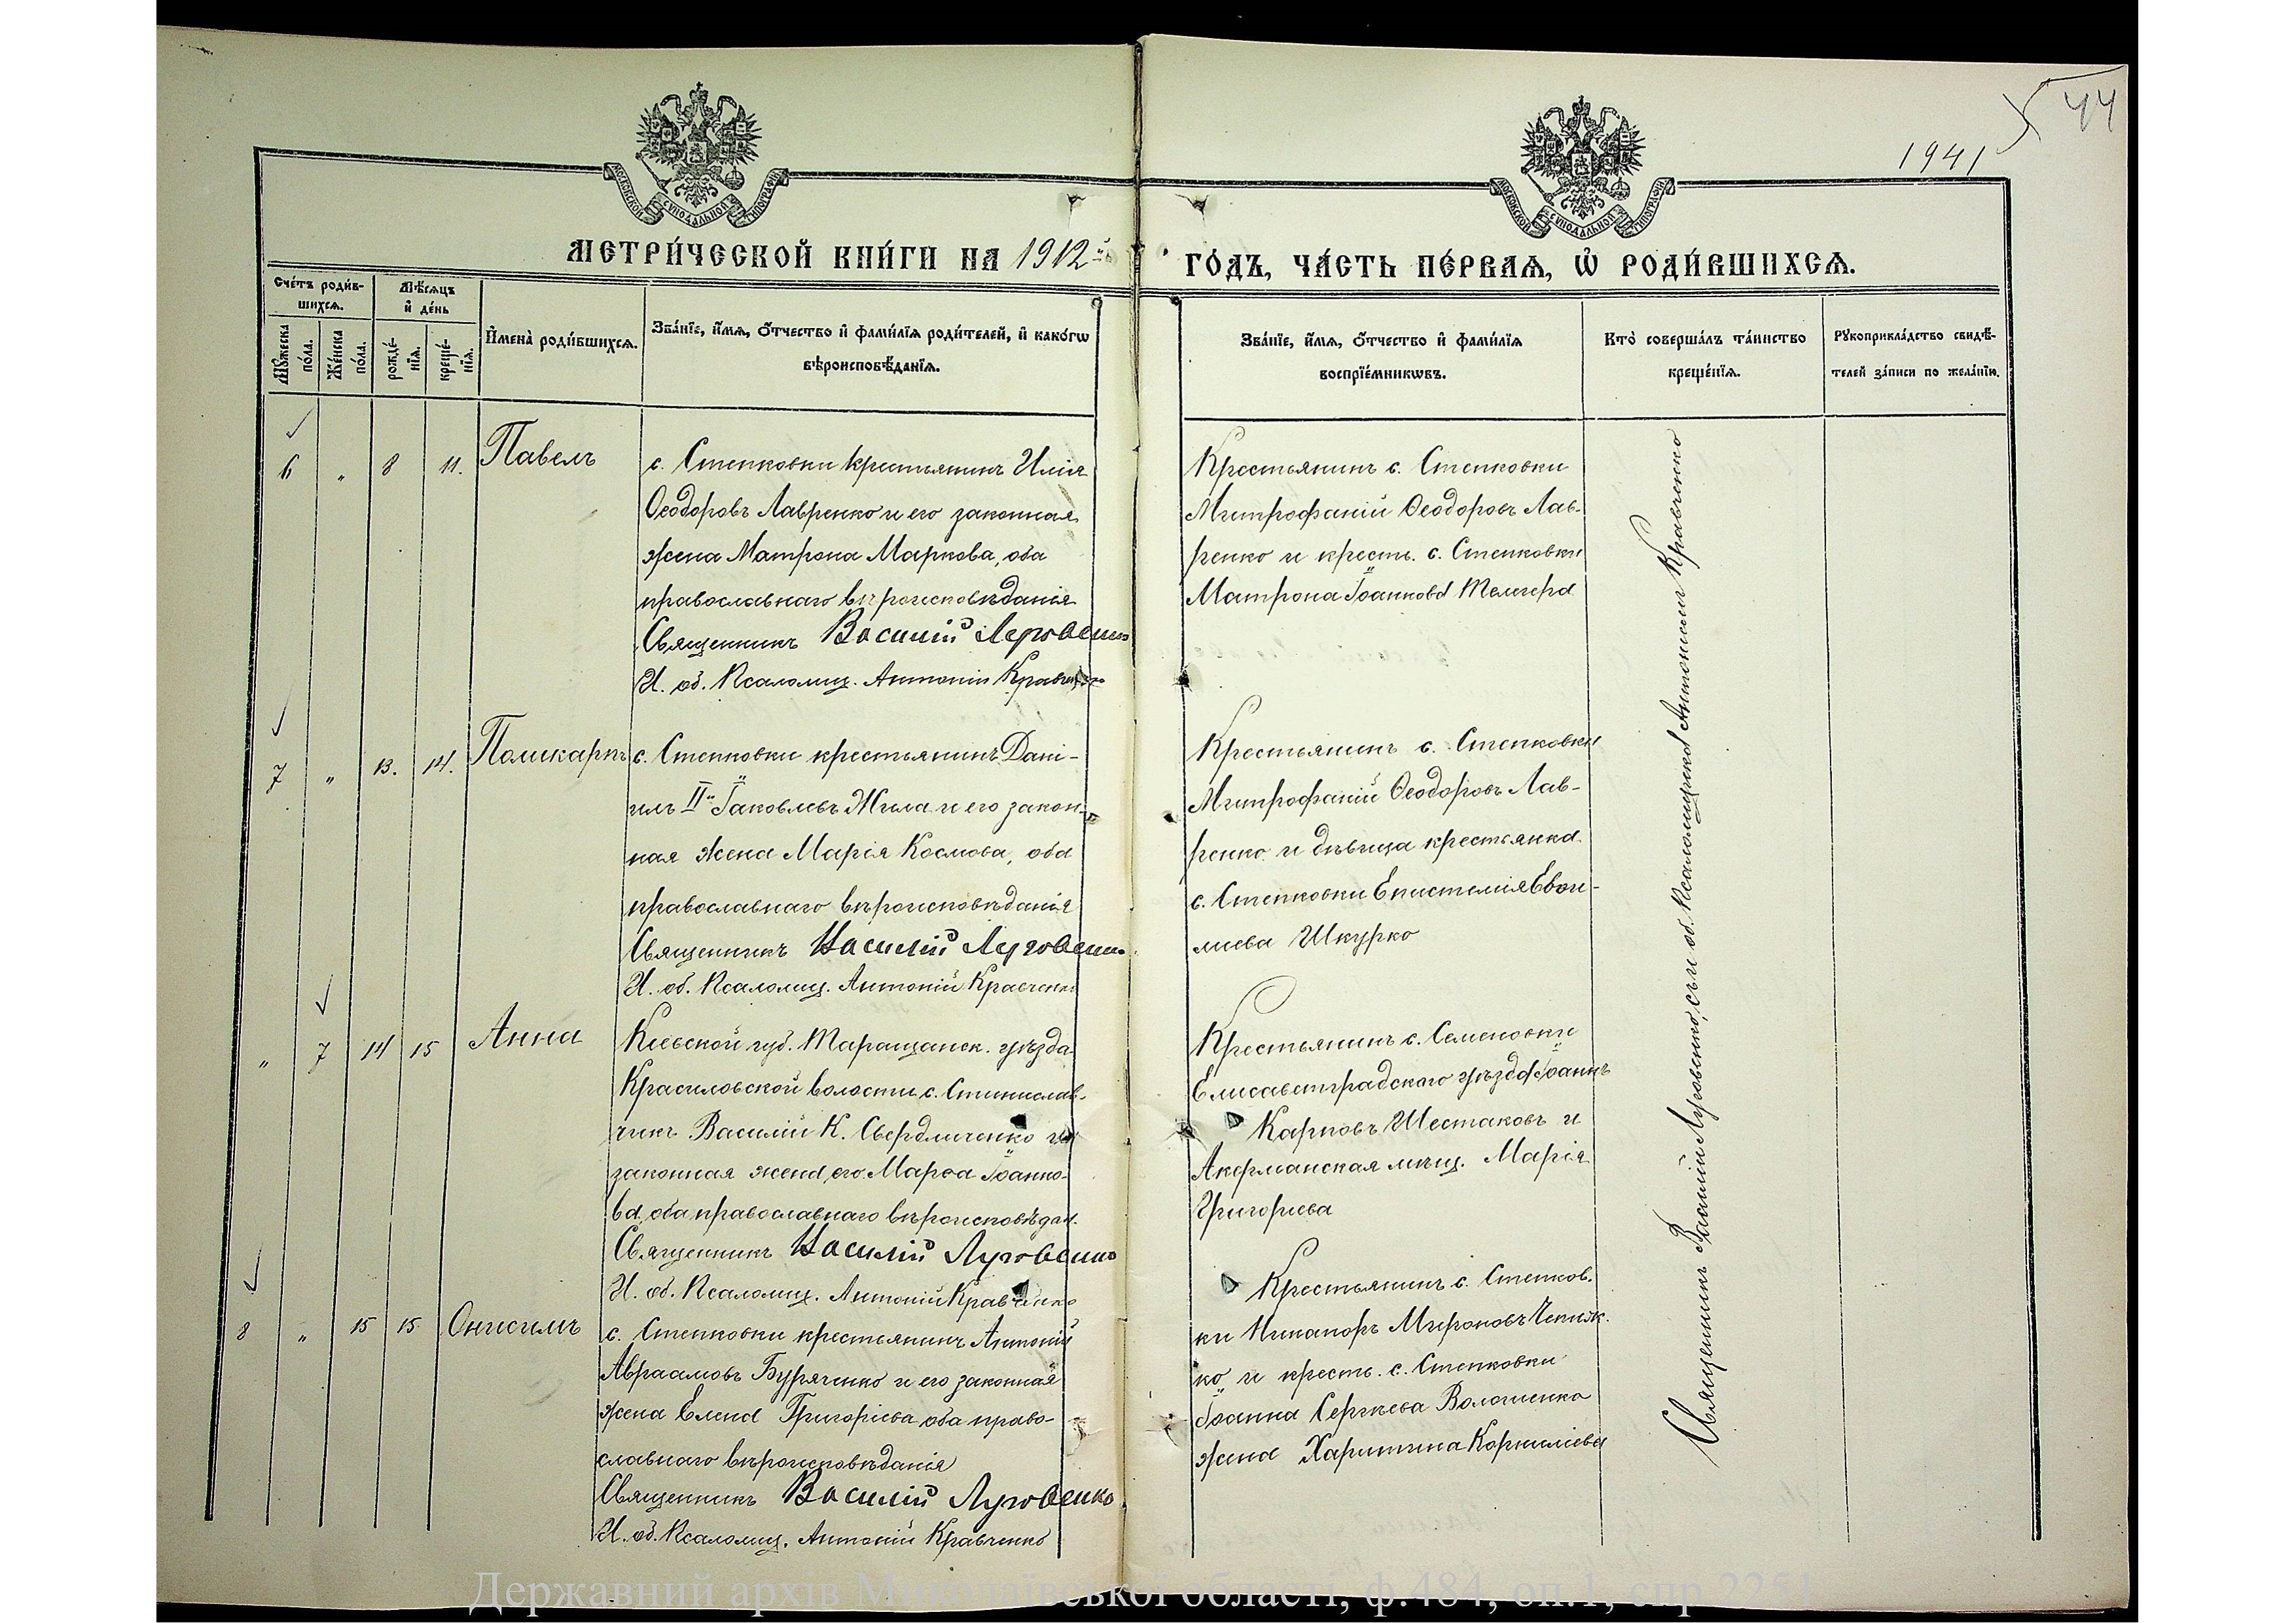 44
1941
МОСКОВСКОЙ СѴНОДАЛЬНОЙ ТИПОГРАФІИ
МОСКОВСКОЙ СѴНОДАЛЬНОЙ ТИПОГРАФІИ
МЕТРИ́ЧЕСКОЙ КНИ́ГИ НА 1912й
ГО́ДЪ, ЧА́СТЬ ПЕ́РВАЯ, Ѡ РОДИ́ВШИХСЯ.
Сче́тъ роди́в-
шихся.
Мѣ́сяцъ
и де́нь
Мꙋ́жеска
по́ла.
Же́нска
по́ла.
рожде́-
нїя.
креще́-
нїя.
Имена̀ роди́вшихся.
Зва́нїе, и́мя, о́тчество и фами́лїя роди́телей, и како́гѡ
вѣроисповѣ́данїя.
Зва́нїе, и́мя, о́тчество и фами́лїя
воспрїе́мникѡвъ.
Кто̀ соверша́лъ та́инство
креще́нїя.
Рꙋкоприкла́дство свидѣ́-
телей за́писи по жела́нїю.
6 " 8 11. Павелъ
с. Степковки крестьянинъ Илія
Ѳеодоровъ Лавренко и его законная
жена Матрона Маркова, оба
православнаго вѣроисповѣданія
Священникъ Василій Луговенко
И. об. Псаломщ. Антоній Кравченко
Крестьянинъ с. Степковки
Митрофаній Ѳеодоровъ Лав-
ренко и крестъ. с. Степковки
Матрона Іоаннова
7 " 13. 14. Поликарпъ
с. Степковки крестьянинъ Дані-
илъ II й Іаковлевъ Жила и его закон-
ная жена Марія Космова, оба
православнаго вѣроисповѣданія
Священникъ Василій Луговенко
И. об. Псаломщ. Антоній Кравченко
Крестьянинъ с. Степковки
Митрофаній Ѳеодоровъ Лав-
ренко и дѣвица крестьянка
с. Степковки Епистимія
Шкурко
" 7 14 15 Анна
Кіевской губ. Таращанск. уѣзда
Красиловской волости, с.
Василій К. Свердличенко и
законная жена его Марѳа Іоанно-
ва, оба православнаго вѣроисповѣдан.
Священникъ Василій Луговенко
И. об. Псаломщ. Антоній Кравченко
Крестьянинъ с. Семеновки
Елисаветградскаго уѣзда Іоаннъ
Карповъ Шестаковъ и
Акерманская мѣщ. Марія
Григорьева
8 " 15 15 Онисимъ
с. Степковки крестьянинъ Антоній
Авраамовъ Буряченко и его законная
жена Елена Григоріева оба право-
славнаго вѣроисповѣданія
Священникъ Василій Луговенко
И. об. Псаломщ. Антоній Кравченко
Крестьянинъ с. Степков-
ки Никаноръ Мироновъ
ко и крестъ. с. Степковки
Іоанна Сергѣева Волошенко
жена Харитина Корниліева
Священникъ Василій Луговенко, съ и. об. Псаломщика Антоніемъ Кравченко
Державний архів Миколаївської області, ф.484, оп.1, спр.2251